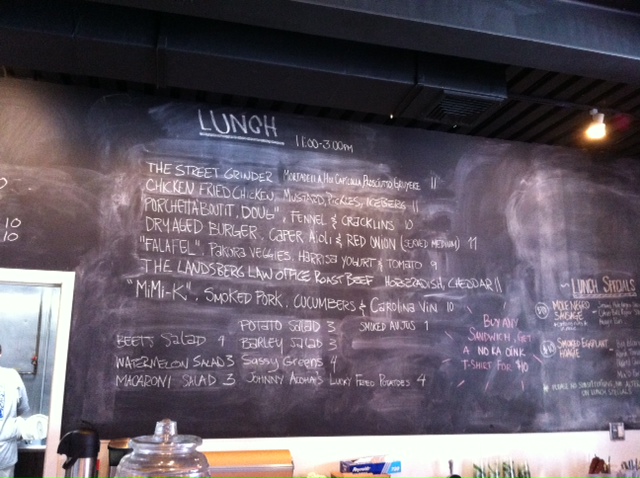 LUNCH 11:00-3:00PM
THE STREET GRINDER MORTADELLA, HOT CAPICOLLA, PROSCIUTTO, GRUYERE 11
CHICKEN FRIED CHICKEN, MUSTARD, PICKLES, ICEBERG 11
PORCHETTABOUTIT, DOUG", FENNEL & CRACKLINS 10
DRY AGED BURGER, CAPER AIOLI & RED ONION (SERVED MEDIUM) 11
"FALAFEL", VEGGIES, HARRISA YOGURT & TOMATO 9
THE LANDSBERG LAW OFFICE ROAST BEEF HORSERADISH, CHEDDAR 11
"MiMi-K", SMOKED PORK, CUCUMBERS & CAROLINA VIN 10
POTATO SALAD 3 SMOKED AUJUS 1
BEETS SALAD 4 BARLEY SALAD 3
WATERMELON SALAD 3 SASSY GREENS 4
MACARONI SALAD 3 JOHNNY ALOHA'S LUCKY FRIED POTATOES 4
BUY ANY
SANDWICH, GET
A NO KA OINK
T-SHIRT FOR $10
LUNCH SPECIALS
MOLE NEGRO
SAUSAGE
SMOKED EGGPLANT
HOAGIE
ON LUNCH SPECIALS
10
10
Reynolds